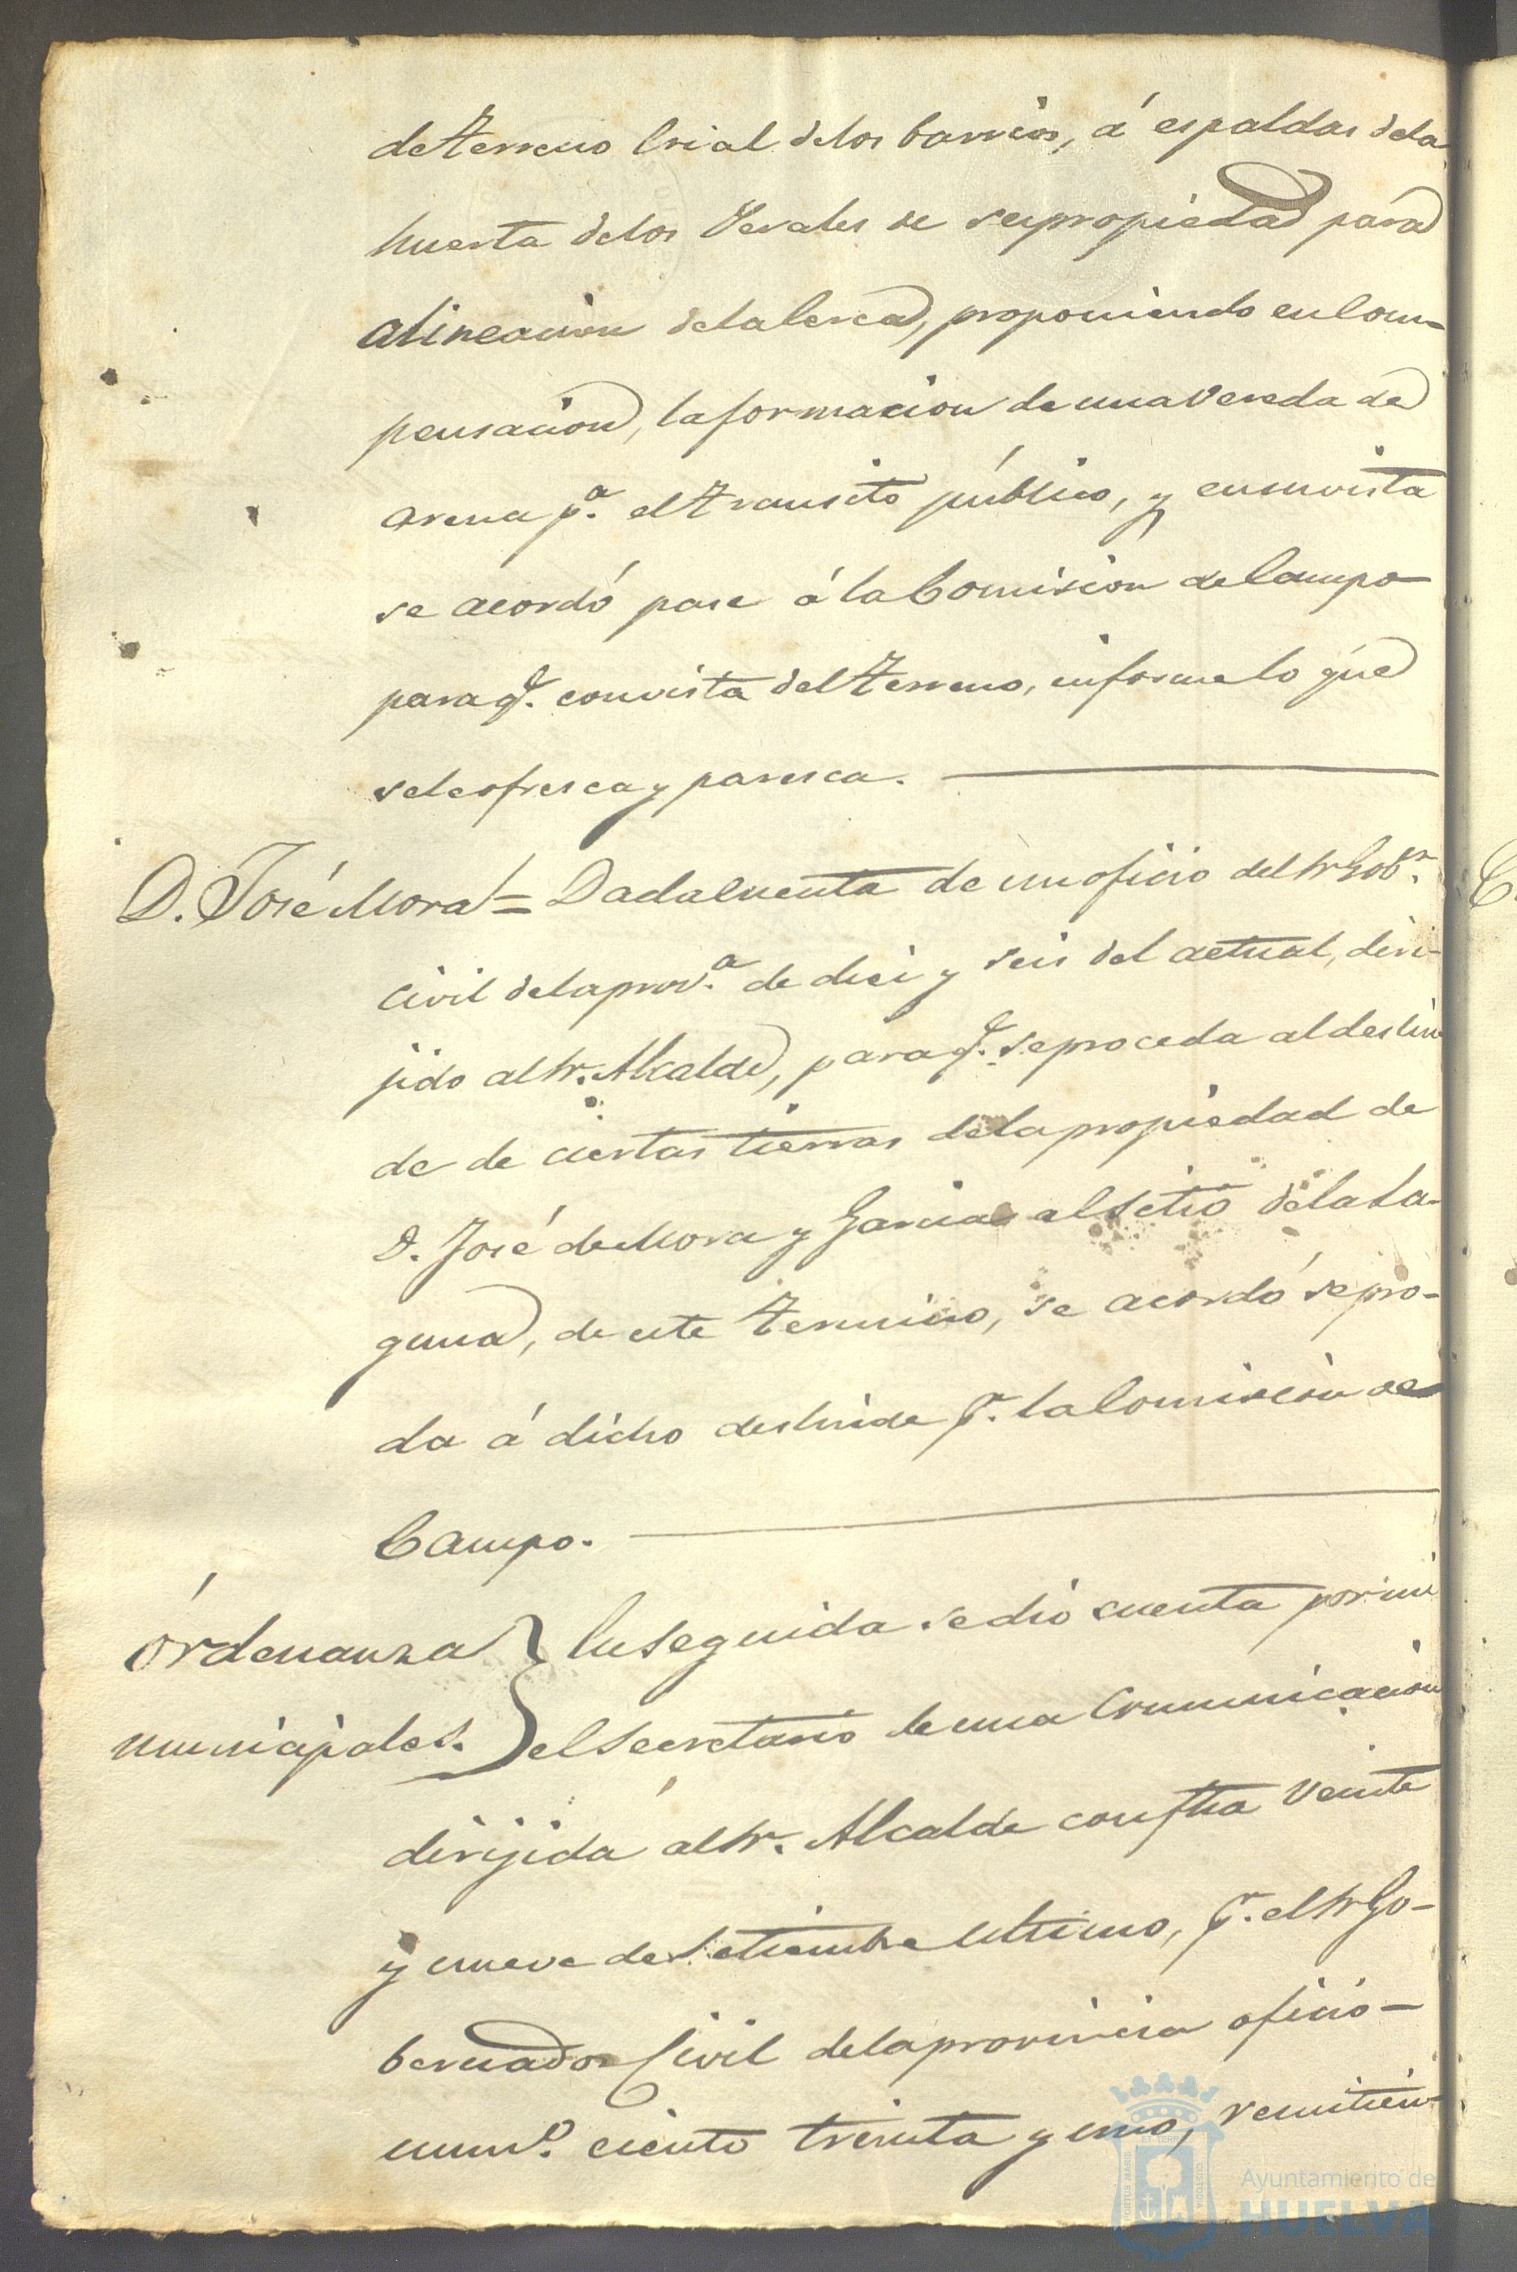 de terreno Crial de los barrios, á espaldas de la
huerta de los Perales de su propiedad para
alineacion de la Cerca, proponiendo en Com-
pensacion, la formacion de una Vereda de
arena p.ª el transito público, y en su vista
se acordó pase á la Comision de Campo
para q.e con vista del terreno, informe lo que
se le ofresca y paresca.
D. José Mora = Dada Cuenta de un oficio del Sr Gob.or
Civil de la prov.ª de diez y seis del actual, diri-
jido al Sr. Alcalde, para q.e se proceda al deslin
de de ciertas tierras de la propiedad de
D. José de Mora y Garcia al sitio de la La-
guna, de este termino, se acordó se pro-
da á dicho deslinde p.r la Comision de
Campo.
Ordenanza } En seguida se dió cuenta por mi
municipales. } el Secretario de una Comunicacion
dirijida al Sr. Alcalde con fha Veinte
y nueve de Setiembre Ultimo, p.r el Sr Go-
bernador Civil de la provincia oficio-
num.o ciento treinta y uno, remitien-
Ayuntamiento de
HUELVA